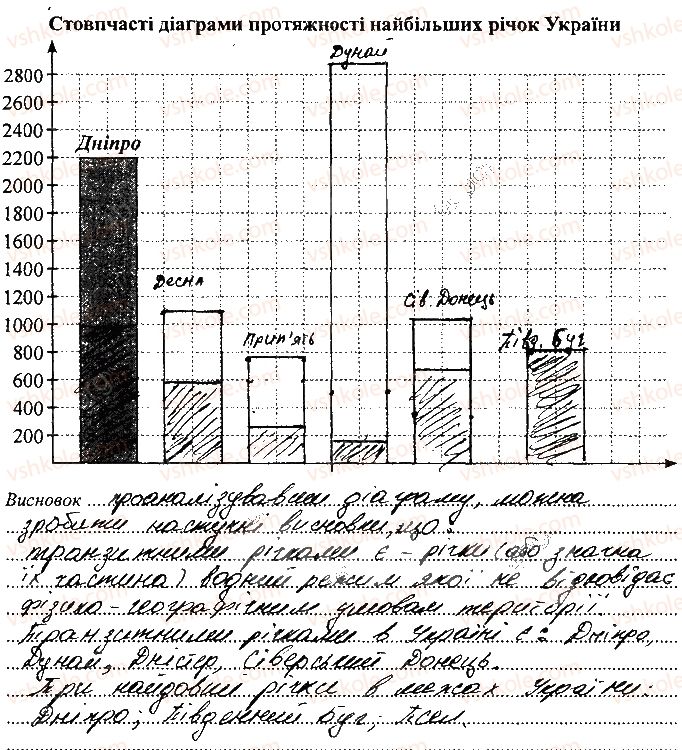 Стовпчасті діаграми протяжності найбільших річок України
Дунай
2800
2600
2400
Дніпро
2200
2000
1800
1600
1400
Десна
1200
Сів. Донець
1000
Прип'ять
Півд. Буг
800
600
400
200
Висновок проаналізувавши діаграму, можна
зробити наступні висновки, що:
транзитними річками є - річки (або значна
їх частина) водний режим якої не відповідає
фізико-географічним умовам території.
Транзитними річками в Україні є: Дніпро,
Дунай, Дністер, Сіверський Донець.
Три найдовші річки в межах України:
Дніпро; Південний Буг; Псел.